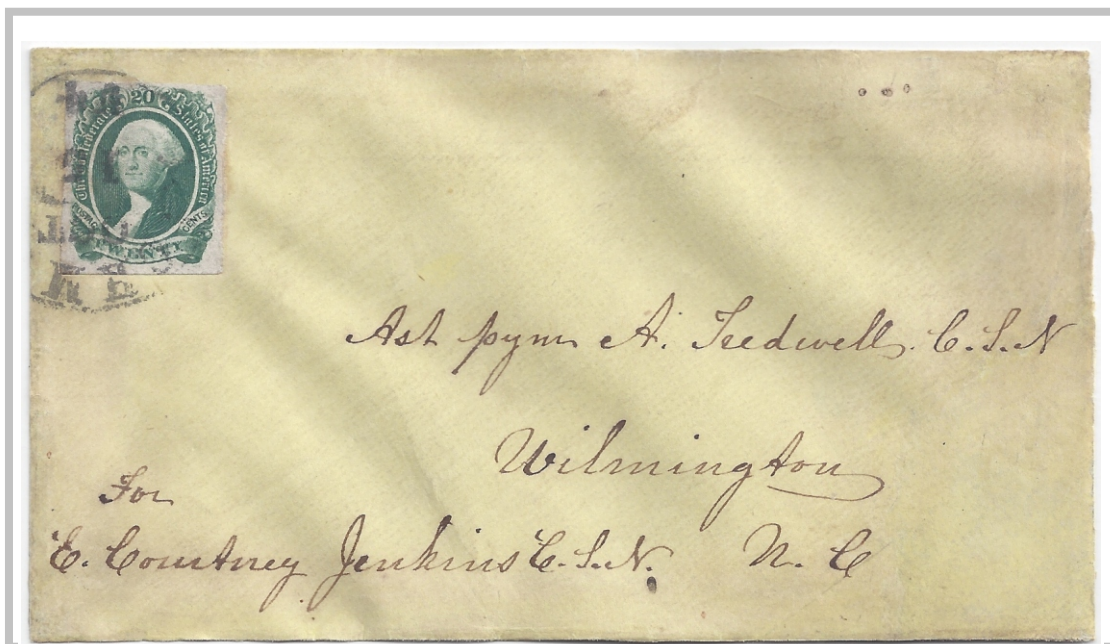 20
Confederate States of America
CENTS
TWENTY
Asst paym A. Tredwell. C.S.N
Wilmington
For
E. Courtney Jenkins C.S.N. N. C